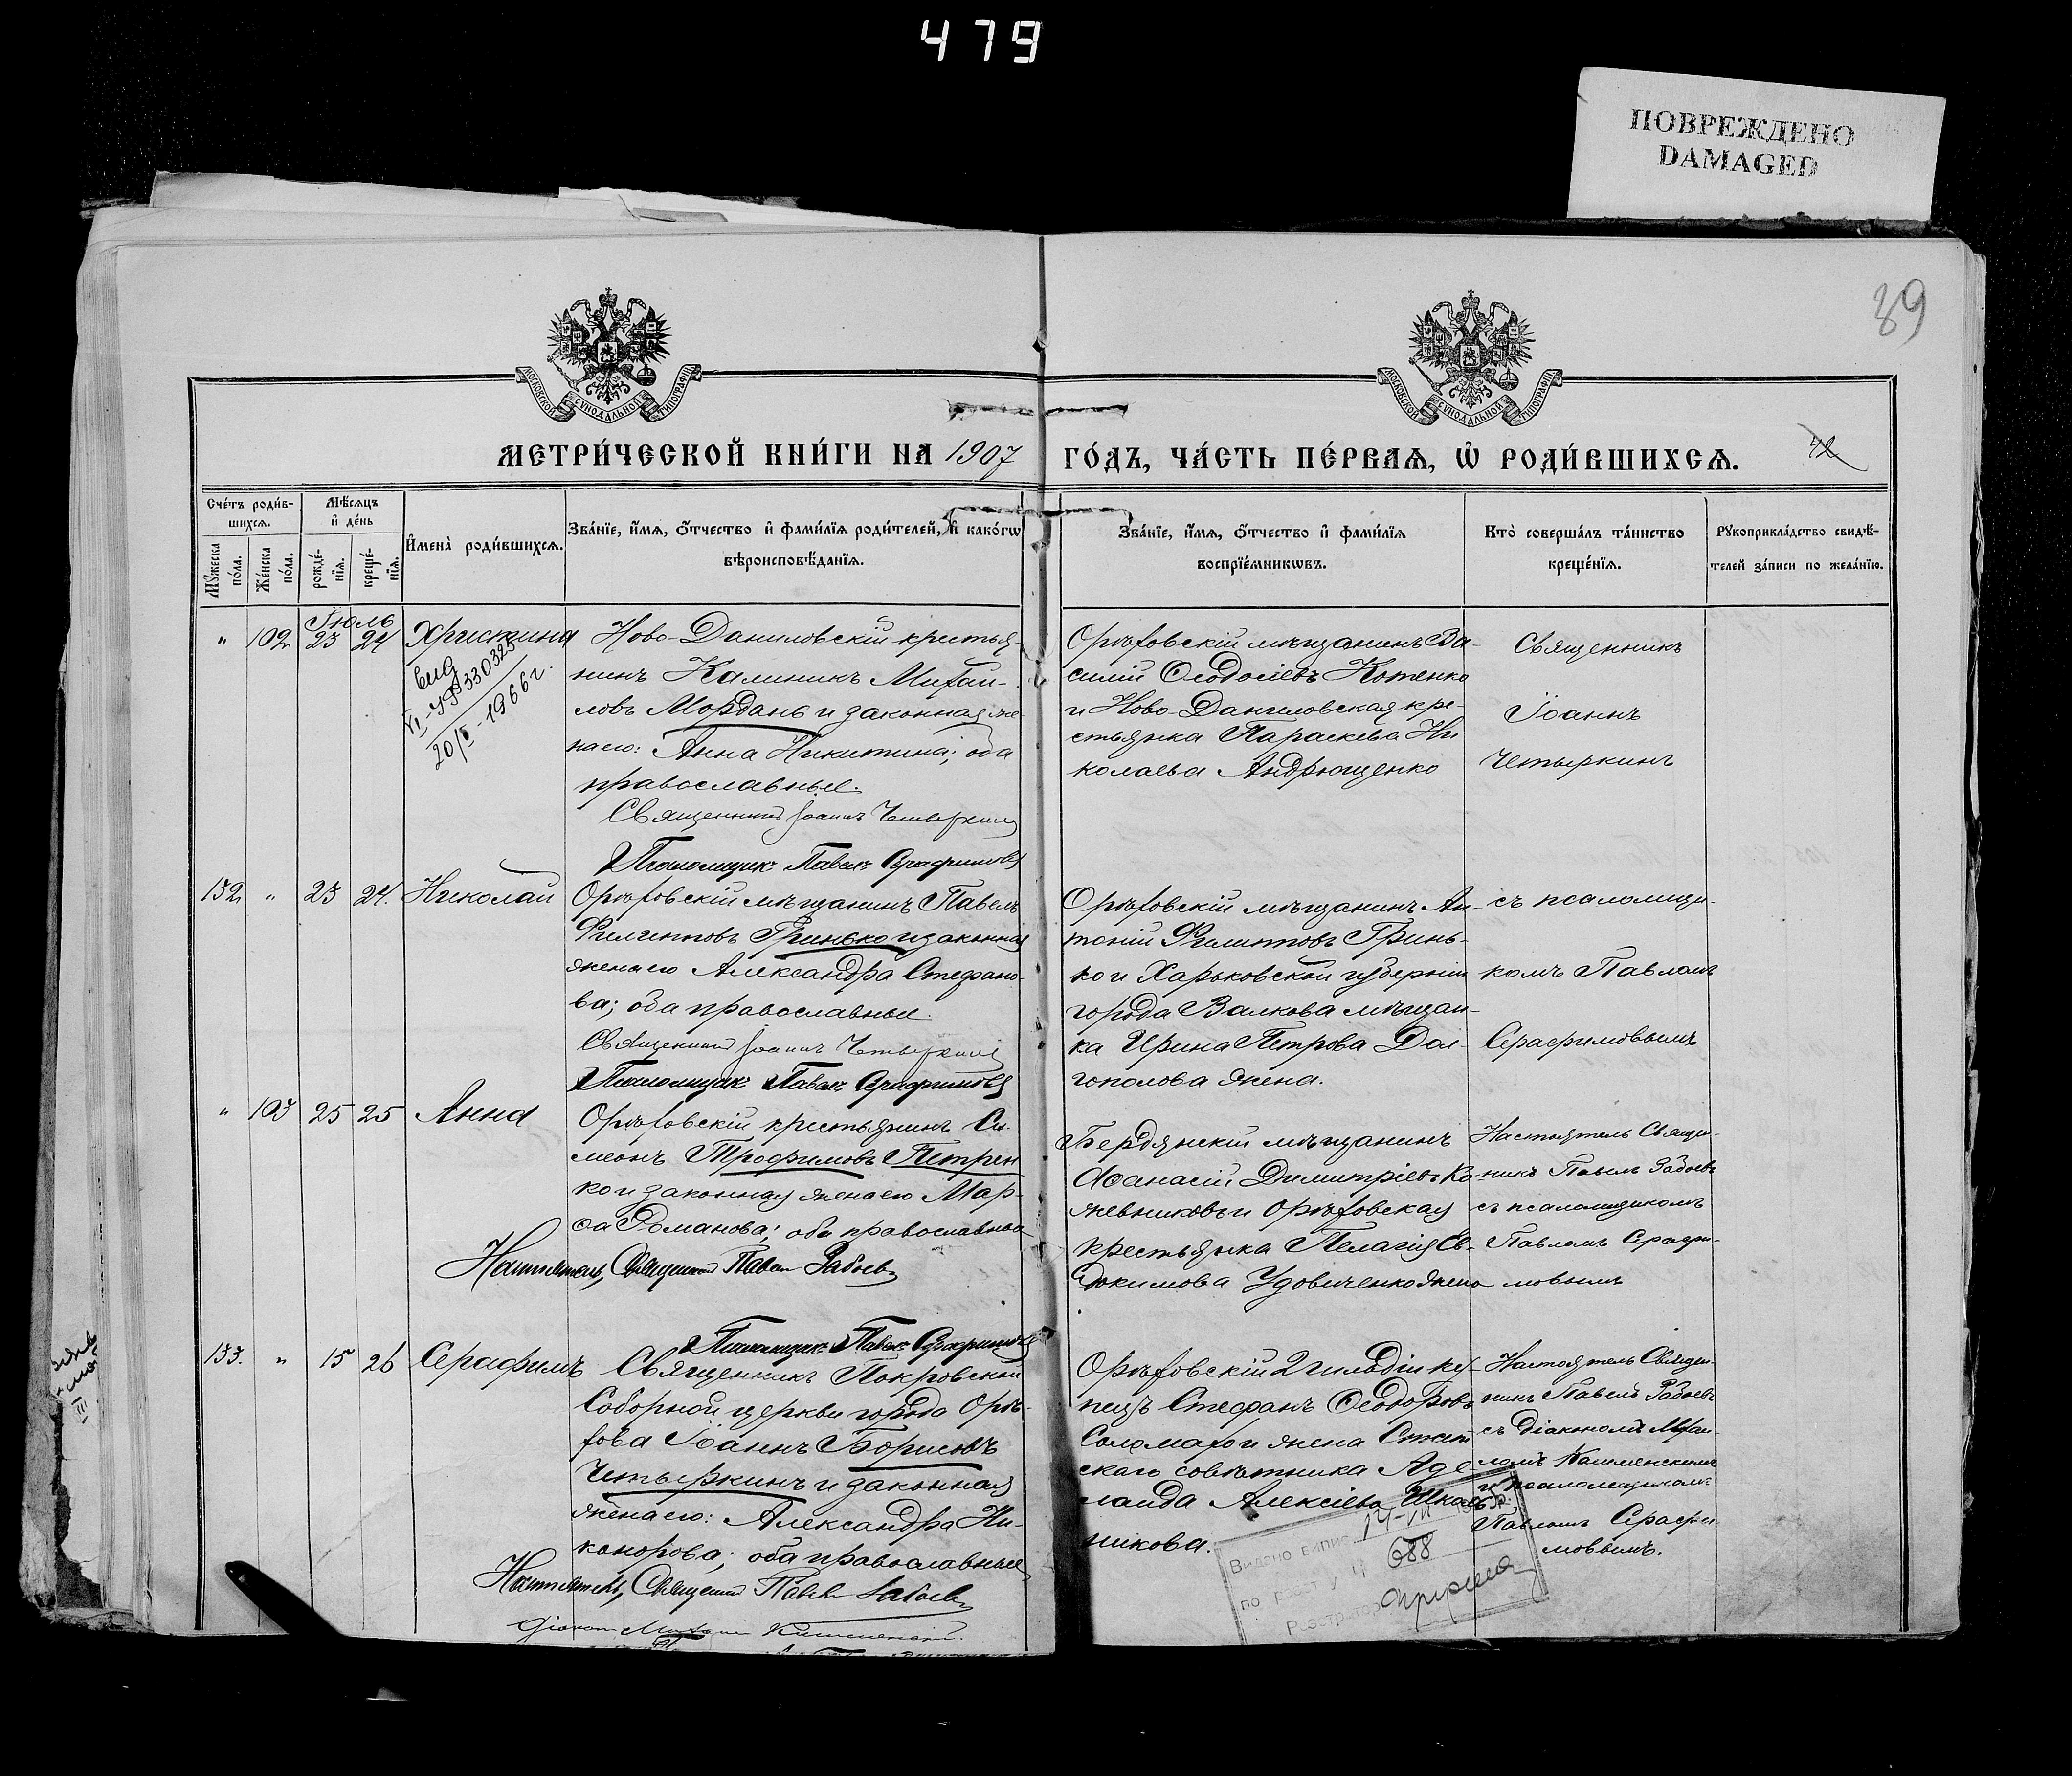 479
ПОВРЕЖДЕНО
DAMAGED
89
МОСКОВСКОЙ СѴНОДАЛЬНОЙ ТИПОГРАФІИ
МОСКОВСКОЙ СѴНОДАЛЬНОЙ ТИПОГРАФІИ
МЕТРИ́ЧЕСКОЙ КНИ́ГИ НА 1907 ГО́ДЪ, ЧА́СТЬ ПЕ́РВАѦ, Ѡ҆ РОДИ́ВШИХСѦ.
42
Сче́тъ роди́в-
шихсѧ.
Мѣ́сѧцъ
и҆ де́нь
Мꙋ́жеска по́ла.
Же́нска по́ла.
рожде́-нїѧ.
креще́-нїѧ.
И҆мена̀ роди́вшихсѧ.
Зва́нїе, и҆́мѧ, о҆́тчество и҆ фами́лїѧ роди́телей, и҆ како́гѡ
вѣроисповѣ́данїѧ.
Зва́нїе, и҆́мѧ, о҆́тчество и҆ фами́лїѧ
воспрїе́мникѡвъ.
Кто̀ соверша́лъ та́инство
креще́нїѧ.
Рꙋкоприкла́дство свидѣ́-
телей за́писи по жела́нїю.
Іюль
" 102 23 24 Христина
20/V-1966 г.
Ново-Даниловскій крестья-
нинъ Калиникъ Михаи-
ловъ Мордань и законная же-
на его: Анна Никитина; оба
православные.
Священникъ Іоаннъ Четыркинъ
Псаломщикъ Павелъ Серафимовъ
Орѣховскій мѣщанинъ Ва-
силій Ѳеодосіевъ Котенко
и Ново-Даниловская кре-
стьянка Параскева Ни
колаева Андрющенко
Священникъ
Іоаннъ
Четыркинъ
132 " 23 24. Николай
Орѣховскій мѣщанинъ Павелъ
Филипповъ Гринько и законная
жена его Александра Стефано-
ва; оба православные.
Священникъ Іоаннъ Четыркинъ
Псаломщикъ Павелъ Серафимовъ
Орѣховскій мѣщанинъ Ан-
тоній Филипповъ Гринь-
ко и Харьковской губерніи
города Валкова мѣщан-
ка Ирина Петрова Дол-
гополова жена.
съ псаломщи-
комъ Павломъ
Серафимовымъ
" 103 25 25 Анна
Орѣховскій крестьянинъ Си-
меонъ Трофимовъ Петрен
ко и законная жена его Мар-
ѳа Романова; оба православные
Настоятель, Священникъ Павелъ Забоевъ
Псаломщикъ Павелъ Серафимовъ
Бердянскій мѣщанинъ
Аѳанасій Димитріевъ Ко-
жевниковъ и Орѣховская
крестьянка Пелагія Ев-
докимова Удовиченко жена
Настоятель Священ-
никъ Павелъ Забоевъ
съ псаломщикомъ
Павломъ Серафи-
мовымъ
133. " 15 26 Серафимъ
Священникъ Покровской
Соборной церкви города Орѣ-
хова Іоаннъ Борисовъ
Четыркинъ и законная
жена его: Александра Ни-
канорова; оба православные
Настоятель, Священникъ Павелъ Забоевъ
Орѣховскій 2 гильдіи ку-
пецъ Стефанъ Ѳеодоровъ
Соломаха и жена Стат
скаго совѣтника Аде-
лаида Алексіева
никова.
Настоятель Священ-
никъ Павелъ Забоевъ
съ Діакономъ Михаи-
ломъ
и псаломщикомъ
Павломъ Серафи-
мовымъ.
Видано випис
по реєстру № 688
Реєстратор